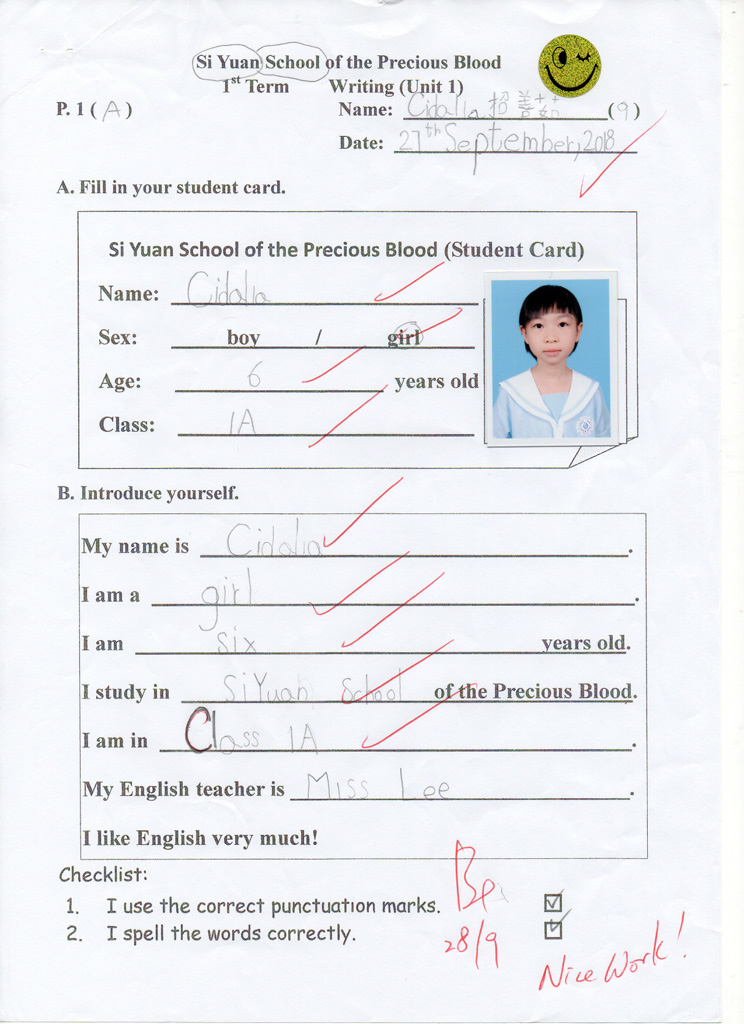 Si Yuan School of the Precious Blood
1st Term Writing (Unit 1)
P. 1 ( A ) Name: Cidalia 招善茹 ( 9 )
Date: 27th September, 2018
A. Fill in your student card.
Si Yuan School of the Precious Blood (Student Card)
Name: Cidalia
Sex: boy / girl
Age: 6 years old
Class: 1A
B. Introduce yourself.
My name is Cidalia.
I am a girl.
I am six years old.
I study in Si Yuan School of the Precious Blood.
I am in Class 1A.
My English teacher is Miss Lee.
I like English very much!
Checklist:
1. I use the correct punctuation marks.
2. I spell the words correctly.
28/9
Nice Work!